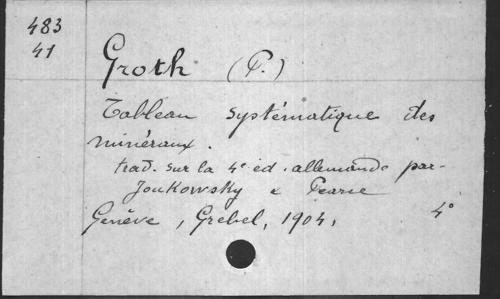 483
41
Groth (P.)
Tableau systématique des
minéraux.
trad. sur la 4e ed. allemande par
Joukowsky e Pearce
Genève, Grebel, 1904, 4°